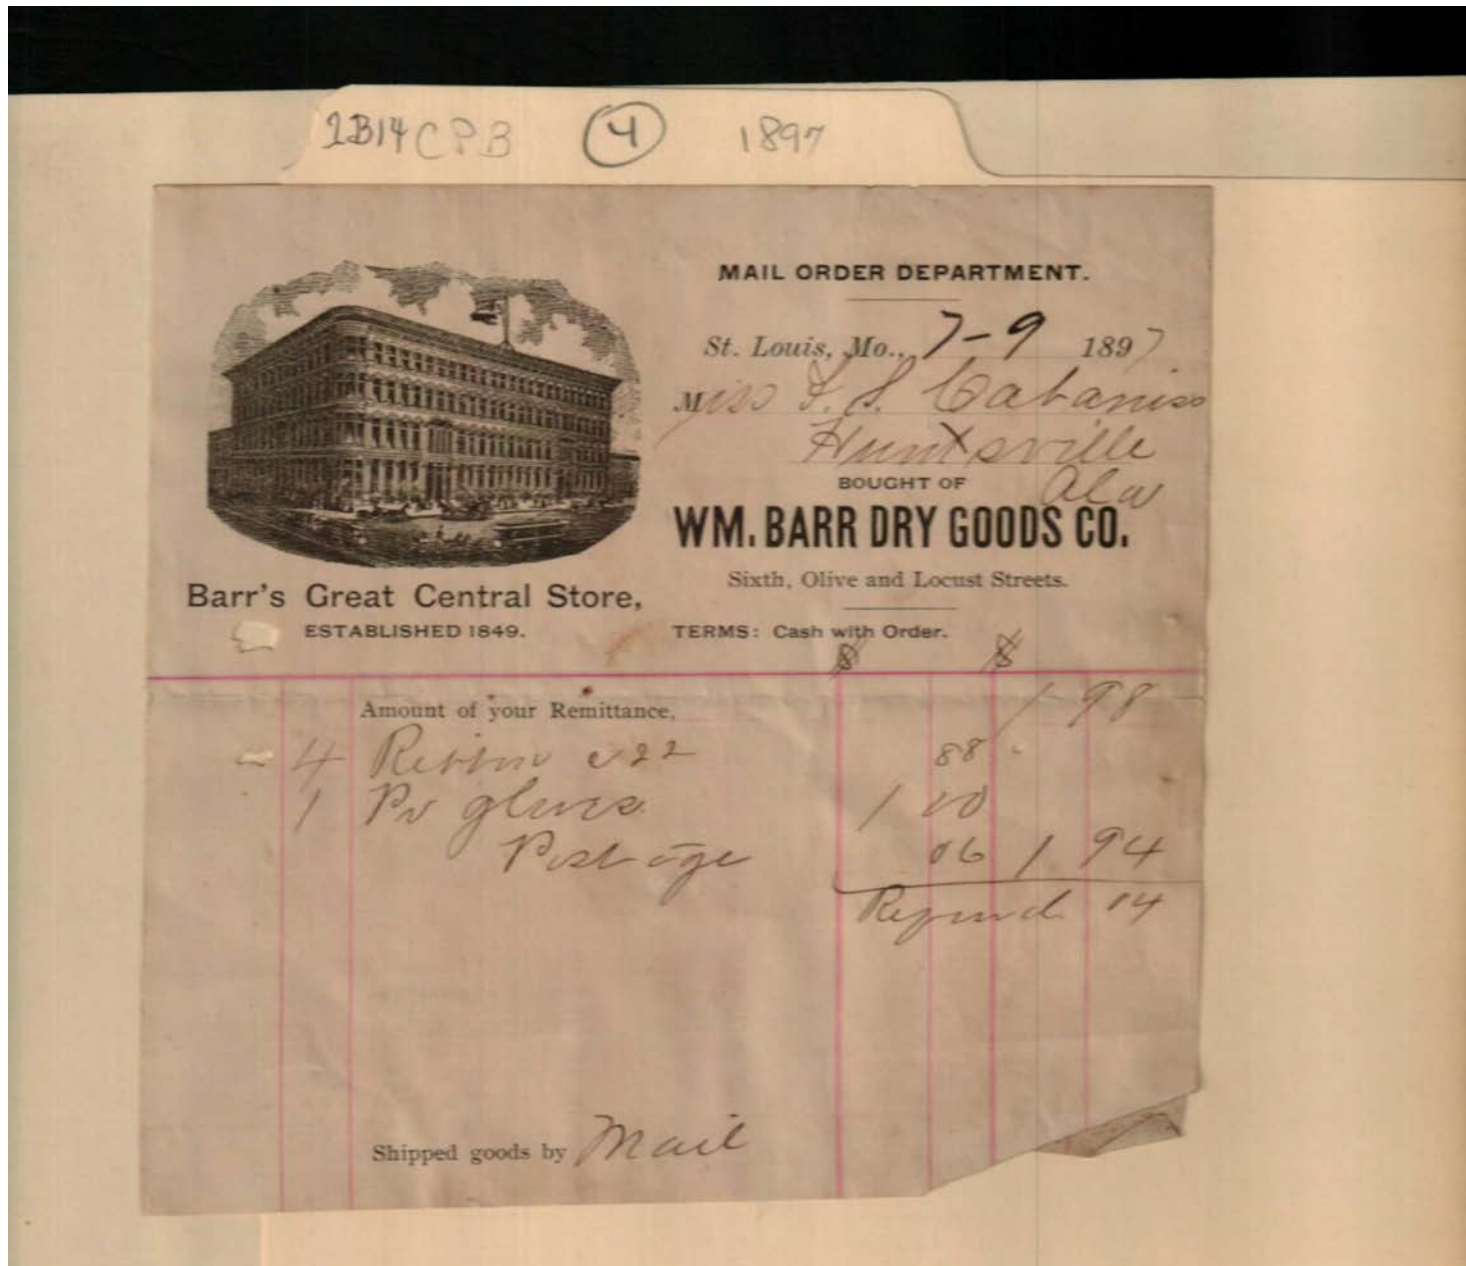 2B14 CPB 4 1897
MAIL ORDER DEPARTMENT.
St. Louis, Mo., 7-9 1897
Miss F. S. Cabaniss
Huntsville
Ala
BOUGHT OF
WM. BARR DRY GOODS CO.
Sixth, Olive and Locust Streets.
Barr's Great Central Store,
ESTABLISHED 1849.
TERMS: Cash with Order.
$ $
Amount of your Remittance, 1 98
4 Ribbon c 22 88
1 Pr gloves 1 00
Postage 06 1 94
Refund 04
Shipped goods by Mail